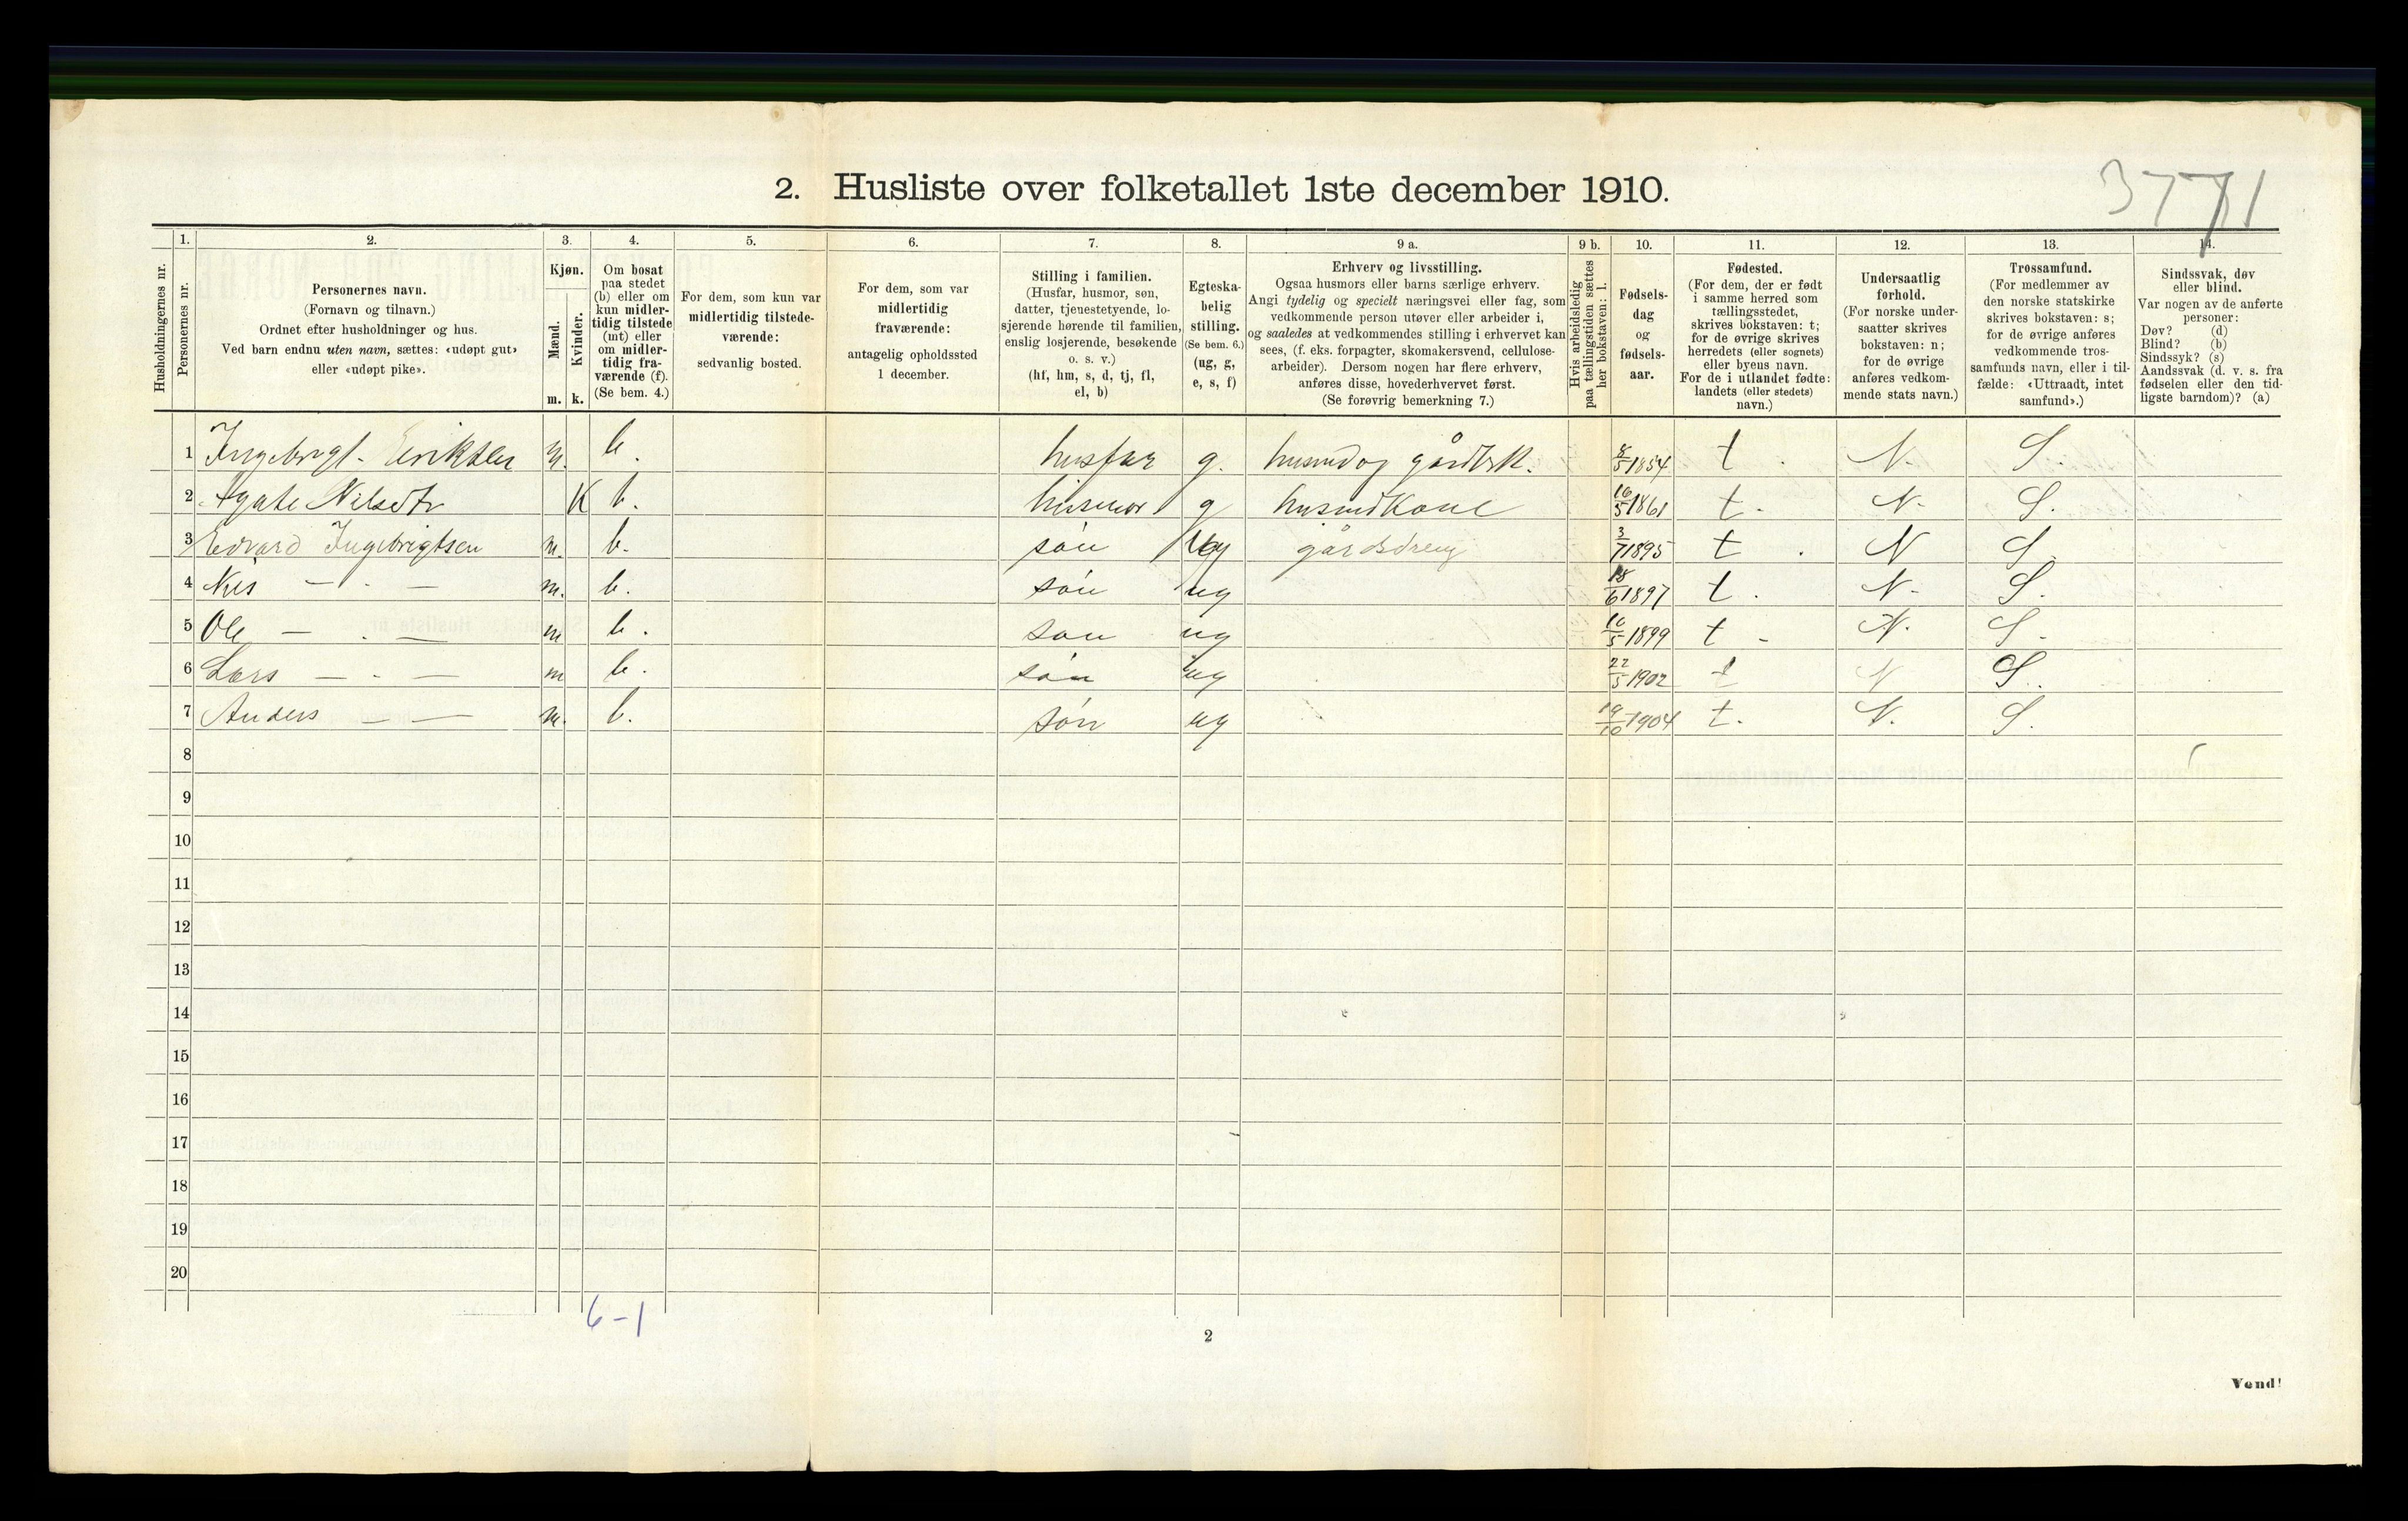 3771
2. Husliste over folketallet 1ste december 1910.
Husholdningernes nr.
1.
Personernes nr.
2.
Personernes navn.
(Fornavn og tilnavn.)
Ordnet efter husholdninger og hus.
Ved barn endnu uten navn, sættes: «udøpt gut»
eller «udøpt pike».
3.
Kjøn.
Mænd.
Kvinder.
m. k.
4.
Om bosat
paa stedet
(b) eller om
kun midler-
tidig tilstede
(mt) eller
om midler-
tidig fra-
værende (f).
(Se bem. 4.)
5.
For dem, som kun var
midlertidig tilstede-
værende:
sedvanlig bosted.
6.
For dem, som var
midlertidig
fraværende:
antagelig opholdssted
1 december.
7.
Stilling i familien.
(Husfar, husmor, søn,
datter, tjenestetyende, lo-
sjerende hørende til familien,
enslig losjerende, besøkende
o. s. v.)
(hf, hm, s, d, tj, fl,
el, b)
8.
Egteska-
belig
stilling.
(Se bem. 6.)
(ug, g,
e, s, f)
9 a.
Erhverv og livsstilling.
Ogsaa husmors eller barns særlige erhverv.
Angi tydelig og specielt næringsvei eller fag, som
vedkommende person utøver eller arbeider i,
og saaledes at vedkommendes stilling i erhvervet kan
sees, (f. eks. forpagter, skomakersvend, cellulose-
arbeider). Dersom nogen har flere erhverv,
anføres disse, hovederhvervet først.
(Se forøvrig bemerkning 7.)
9 b.
Hvis arbeidsledig
paa tællingstiden sættes
her bokstaven: l.
10.
Fødsels-
dag
og
fødsels-
aar.
11.
Fødested.
(For dem, der er født
i samme herred som
tællingsstedet,
skrives bokstaven: t;
for de øvrige skrives
herredets (eller sognets)
eller byens navn.
For de i utlandet fødte:
landets (eller stedets)
navn.)
12.
Undersaatlig
forhold.
(For norske under-
saatter skrives
bokstaven: n;
for de øvrige
anføres vedkom-
mende stats navn.)
13.
Trossamfund.
(For medlemmer av
den norske statskirke
skrives bokstaven: s;
for de øvrige anføres
vedkommende tros-
samfunds navn, eller i til-
fælde: «Uttraadt, intet
samfund».)
14.
Sindssvak, døv
eller blind.
Var nogen av de anførte
personer:
Døv? (d)
Blind? (b)
Sindssyk? (s)
Aandssvak (d. v. s. fra
fødselen eller den tid-
ligste barndom)? (a)
1 Ingebrigt Eriksen m. b. husfar g. husmd og gårdbrk. 8/5 1854 t. N. S.
2 Agate Nilsdtr K b. husmor g husmdkone 16/5 1861 t. N. S.
3 Edvard Ingebrigtsen m. b. søn ug gårdsdreng 3/7 1895 t. N S.
4 Nils — - — m. b. søn ug 18/6 1897 t. N. S.
5 Ole — . — m b. søn ug 16/5 1899 t - N. S.
6 Lars — - — m b. søn ug 22/5 1902 t N S.
7 Anders — — m. b. søn ug 19/10 1904 t. N. S.
8
9
10
11
12
13
14
15
16
17
18
19
20
6-1
2
Vend!